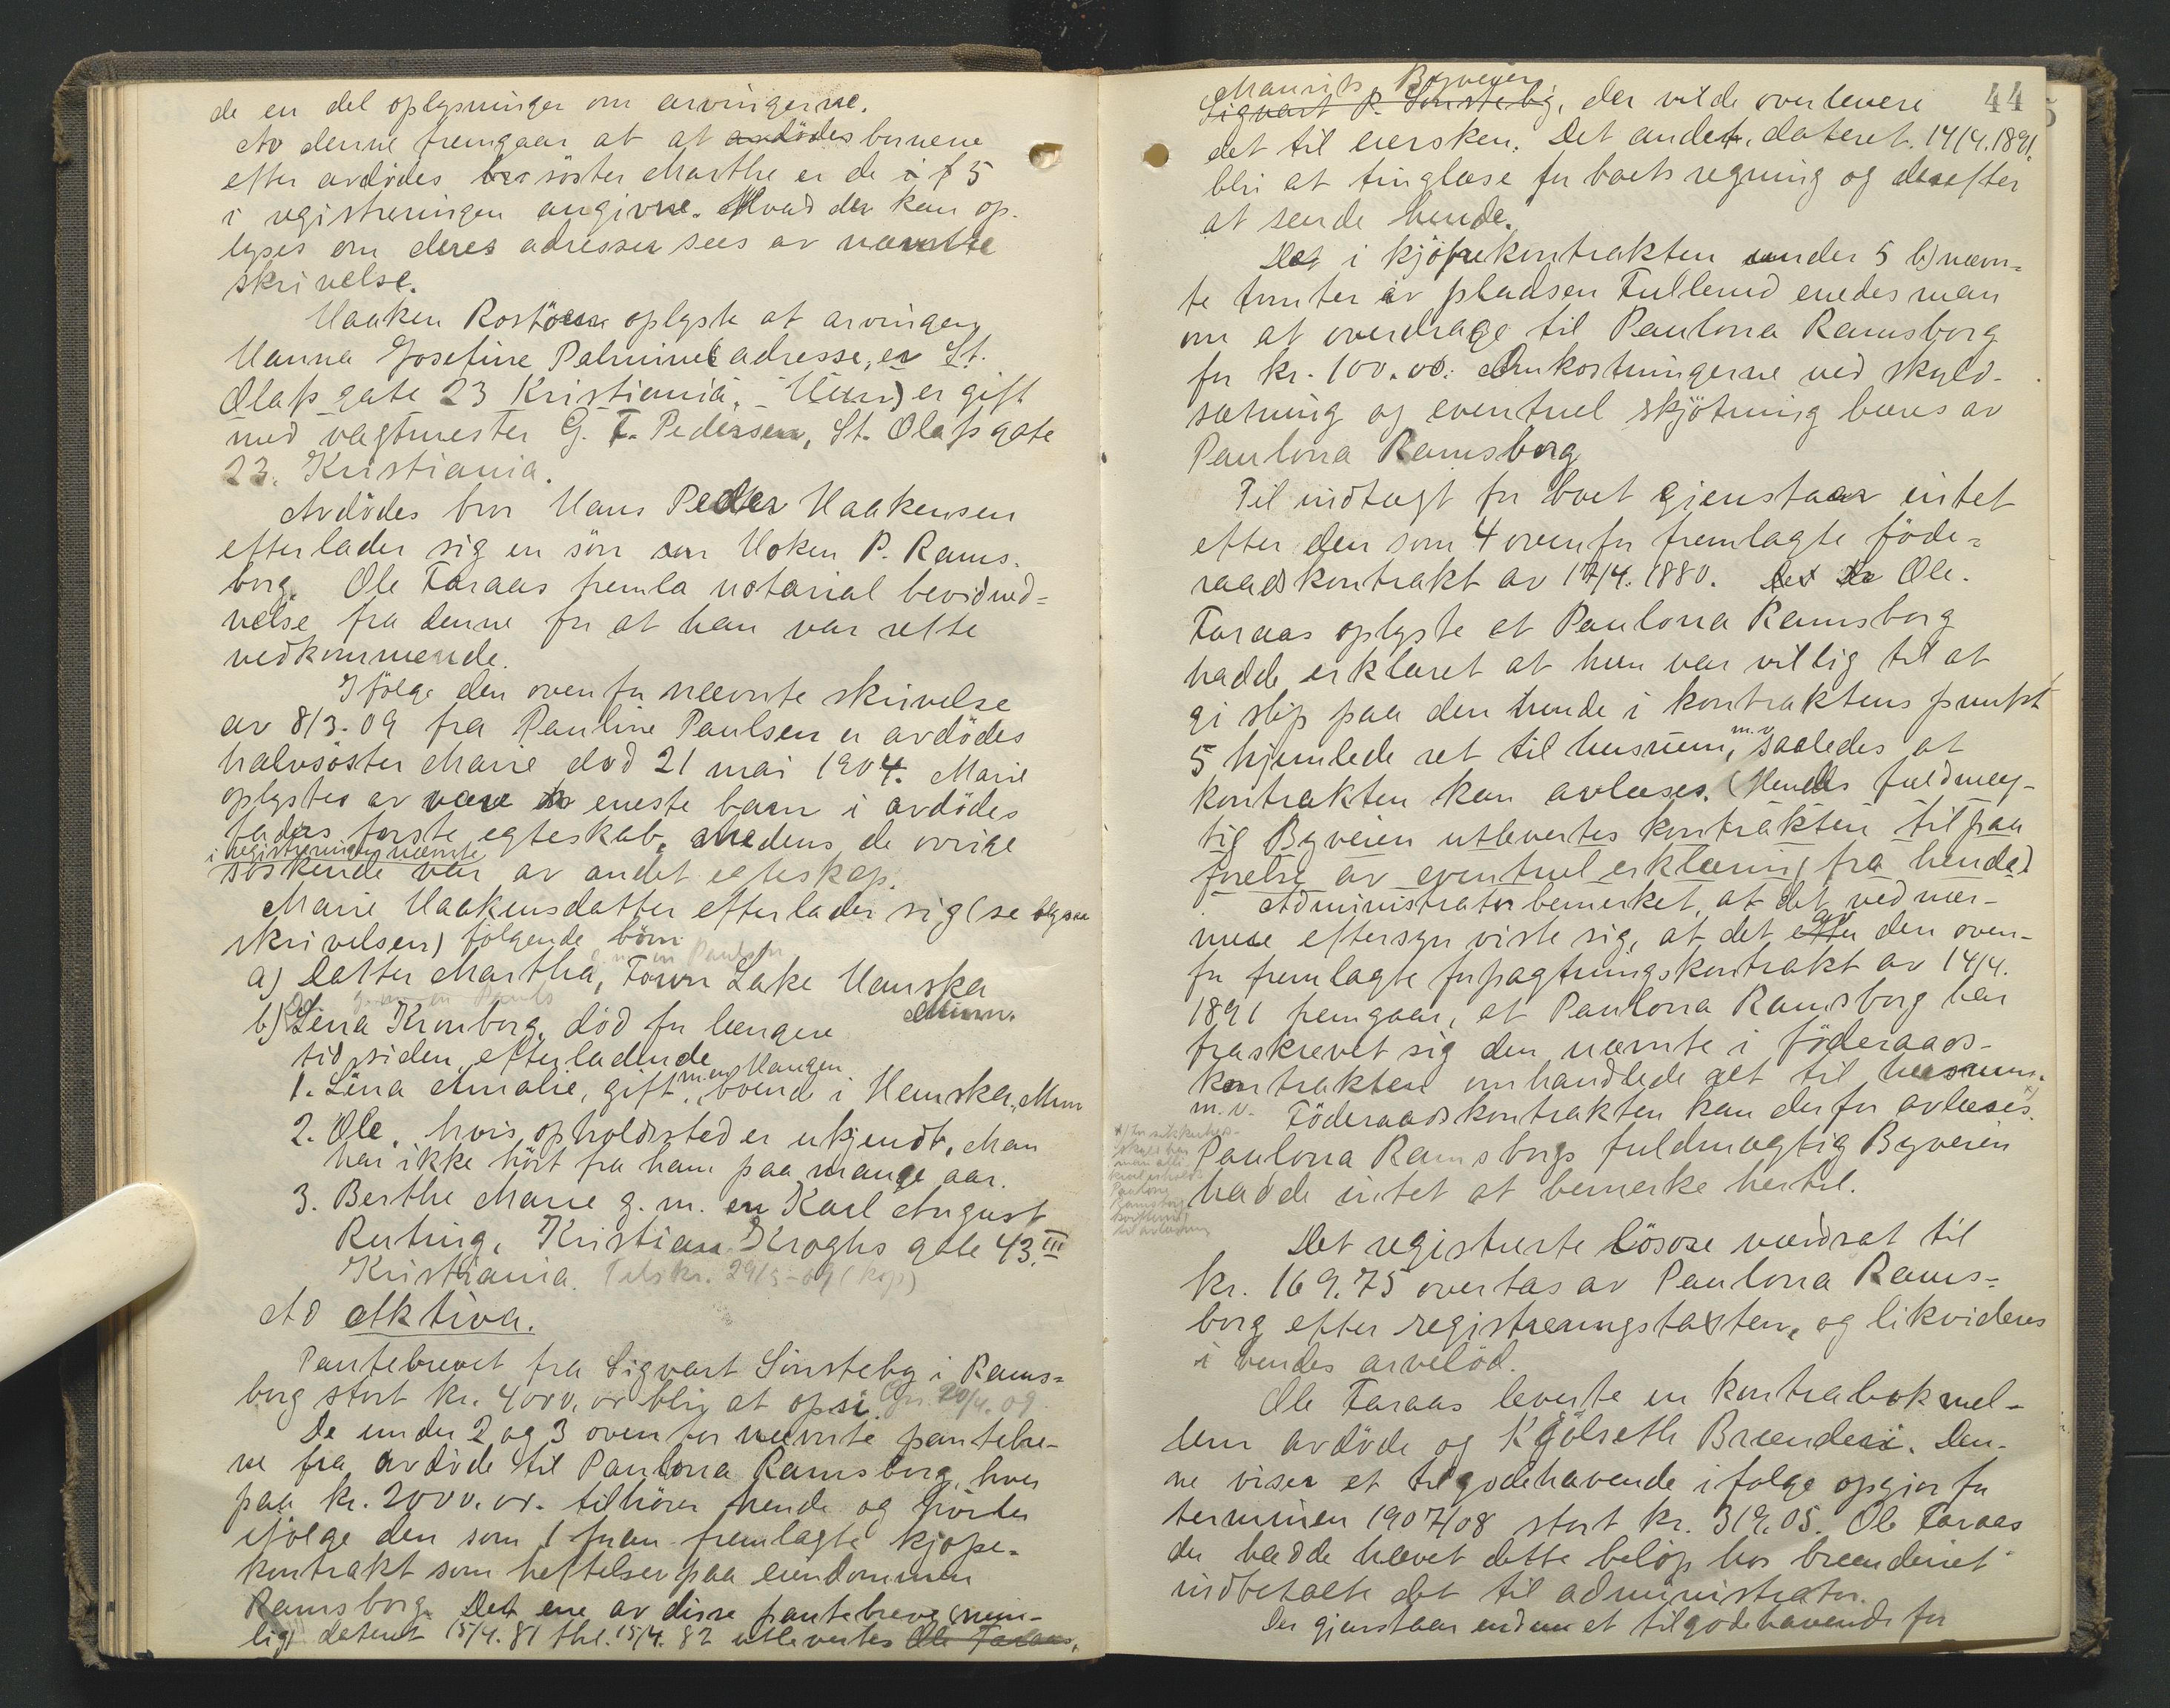 de en del oplysninger om arvingerne.
Av denne fremgaar at at avdödes bernene
efter avdödes söster Marthe er de i § 5
i registreringen angivne. Hvad der kan op-
lyses om deres adresser sees av nævnte
skrivelse.
Haaken Rostöen oplyste at arvingen
Hanna Josefine Palmine's adresse, er St.
Olafs gate 23 Kristiania. Hun er gift
med vagtmester G. F. Pedersen, St. Olafs gate
23. Kristiania.
Avdödes bror Hans Peder Haakensen
efterlader sig en sön Hoken P. Rams-
borg. Ole Faraas fremla notarial bevidned-
nelse fra denne for at han var rette
vedkommende.
Ifölge den ovenfor nævnte skrivelse
av 8/3-09 fra Pauline Paulsen er avdödes
halvsöster Marie död 21 mai 1904. Marie
oplystes av være eneste barn i avdödes
faders forste egteskab, medens de övrige
i registreringen nævnte
söskende var av andet egteskap.
Marie Haakensdatter efterlader sig (se
skrivelsen) fölgende börn
g. m. en Paulsen
a) Datter Martha, Town Lake Hanska
Minn.
b) Lina Kronborg, död for længere
tid siden, efterladende
1. Lina Amalie, gift m. en Haugen, boende i Hanska, Minn
2. Ole, hvis opholdssted er ukjendt. Man
har ikke hört fra ham paa mange aar.
3. Berthe Marie g. m. en Karl August
Ruting, Kristian Kroghs gate 43. III
Kristiania. Tilskr. 29/5-09 (kop)
Ad Aktiva.
Pantebrevet fra Sigvart Sönsteby i Rams-
borg stort kr. 4000,00 blir at opsi. 20/4. 09
De under 2 og 3 ovenfor nævnte pantebre-
ve fra avdöde til Paulona Ramsborg, hver
paa kr. 2000.00. tilhörer hende og
ifölge den som 1 foran fremlagte kjöpe-
kontrakt som heftelser paa eiendommen
Ramsborg. Det ene av disse pantebreve, nem-
lig dateret 15/4. 81 thl. 15/4. 82 utlevertes Ole Faraas,
44
Maurits Byveien
Sigvart P. Sönsteby, der vilde overlevere
det til eiersken. Det andet, dateret 14/4. 1891.
blir at tinglæse for boets regning og derefter
at sende hende.
Det i kjöpekontrakten under 5 b) nævn-
te tomter av pladsen Fullerud enedes man
om at overdrage til Paulona Ramsborg
for kr. 100.00. Omkostningerne ved skyld-
sætning og eventuel skjötning bæres av
Paulona Ramsborg
Til indtægt for boet gjenstaar intet
efter den som 4 ovenfor fremlagte föde-
raadskontrakt av 17/4. 1880. Ole
Faraas oplyste at Paulona Ramsborg
hadde erklæret at hun var villig til at
gi slip paa den hende i kontraktens punkt
5 hjemlede ret til husrum, m.v. saaledes at
kontrakten kan avlæses. (Hendes fuldmæg-
tig Byveien utlevertes kontrakten til paa
förelse av eventuel erklæring fra hende)
Administrator bemerket, at det ved nær-
mere eftersyn viste sig, at det efter av den oven-
for fremlagte forpagtningskontrakt av 14/4.
1891 fremgaar, at Paulona Ramsborg har
fraskrevet sig den nævnte i föderaads-
kontrakten omhandlede ret til husrum.
m. v. Föderaadskontrakten kan derfor avlæses. *)
Paulona Ramsborgs fuldmægtig Byveien
hadde intet at bemerke hertil.
Det registrerte lösöre værdsat til
kr. 169.75 overtas av Paulona Rams-
borg efter registreringstaxten, og likvideres
i hendes arvelod.
Ole Faraas leverte en kontrabok mel-
lem avdöde og Kjölseth Brænderi. Den-
ne viser et tilgodehavende ifölge opgjör for
terminen 1907/08 stort kr. 319.05. Ole Faraas
der hadde hævet dette belöp hos brænderiet
indbetalte det til administrator.
Der gjenstaar endnu et tilgodehavende for